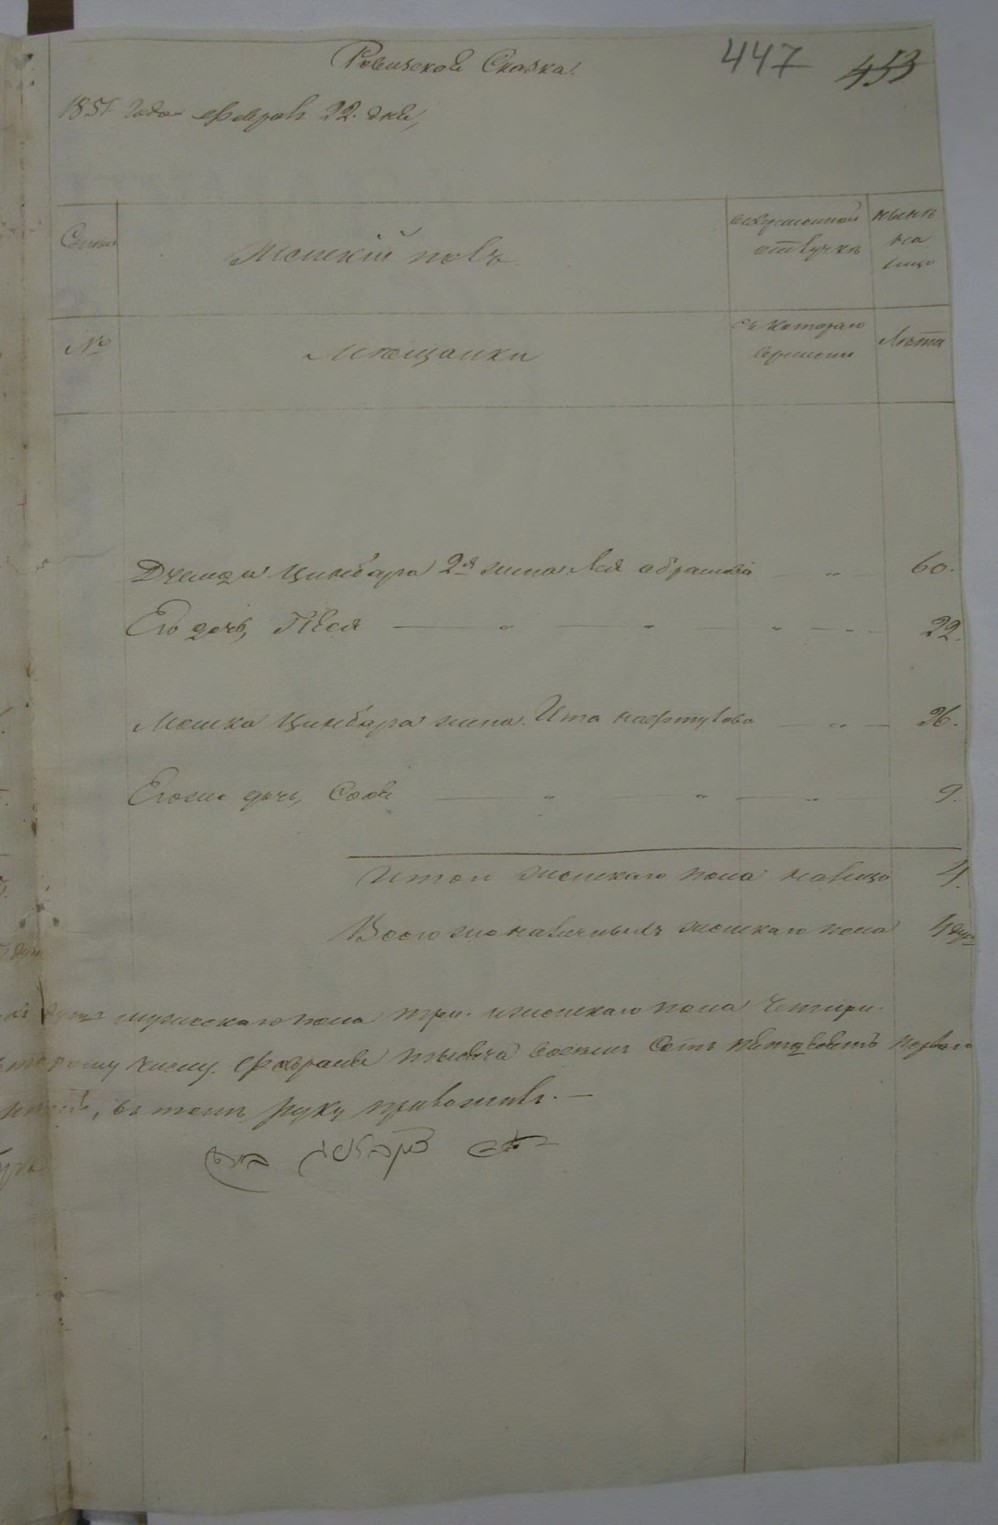 Ревизская Сказка.
447 453
1851 года февраля 22. дня,
Семьи
Женскій полъ
во временной отлучке
ныне на лицо
№
Мещанки
съ котораго времени
Лета
цимбара 2я жена Лея абрамова 60.
Его дочь, Песя 22.
Мошка цимбара жена Ита нафтулова 36.
Его же дочь, Сося 9.
Итого женскаго пола на лицо 4.
Всего же наличныхъ женскаго пола 4 душ
душъ мужескаго пола три. и женскаго пола четыри.
второму числу. февраля тысяча восемь сотъ пятдесятъ перваго
въ томъ руку приложилъ. —